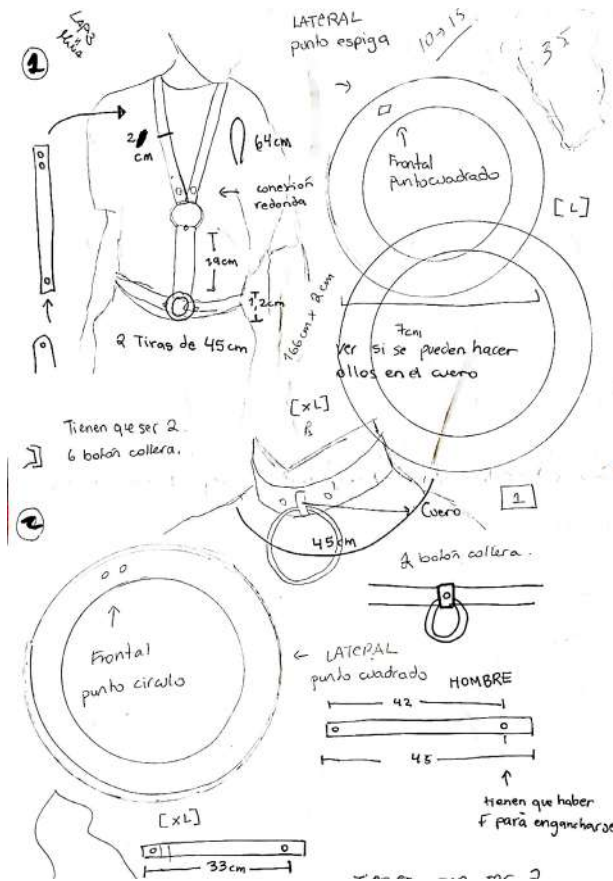 LATERAL
punto espiga
10→15
35
1
2
cm
64cm
conexión
redonda
Frontal
punto cuadrado
[L]
19cm
1,2cm
2 Tiras de 45cm
166cm x 2cm
7cm
ver si se pueden hacer
ollos en el cuero
[XL]
Tienen que ser 2
6 botón collera.
1
2
Cuero
45cm
botón collera.
Frontal
punto circulo
← LATERAL
punto cuadrado
HOMBRE
42
45
tienen que haber
F para engancharse
[XL]
33cm